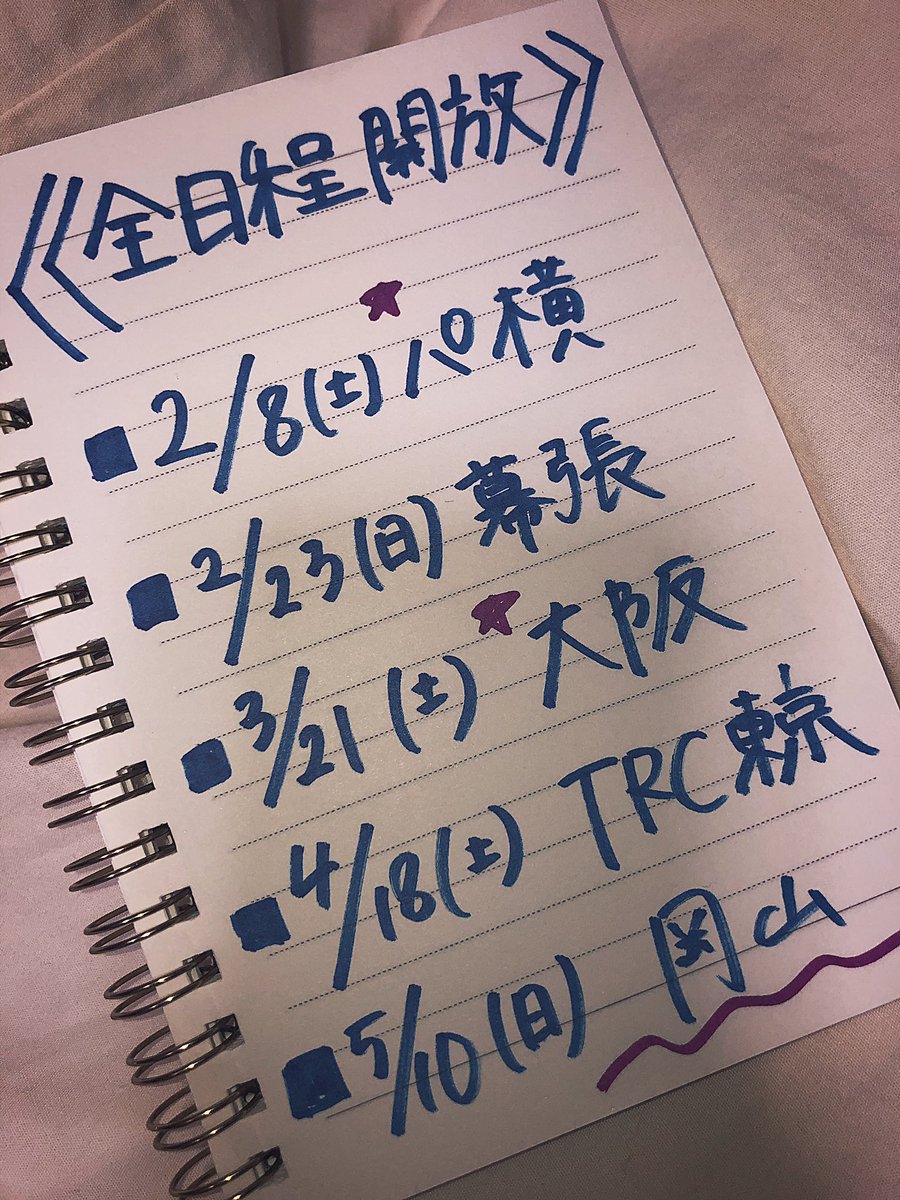 《全日程開放》
■2/8(土)パ横
■2/23(日)幕張
■3/21(土)大阪
■4/18(土)TRC東京
■5/10(日)岡山